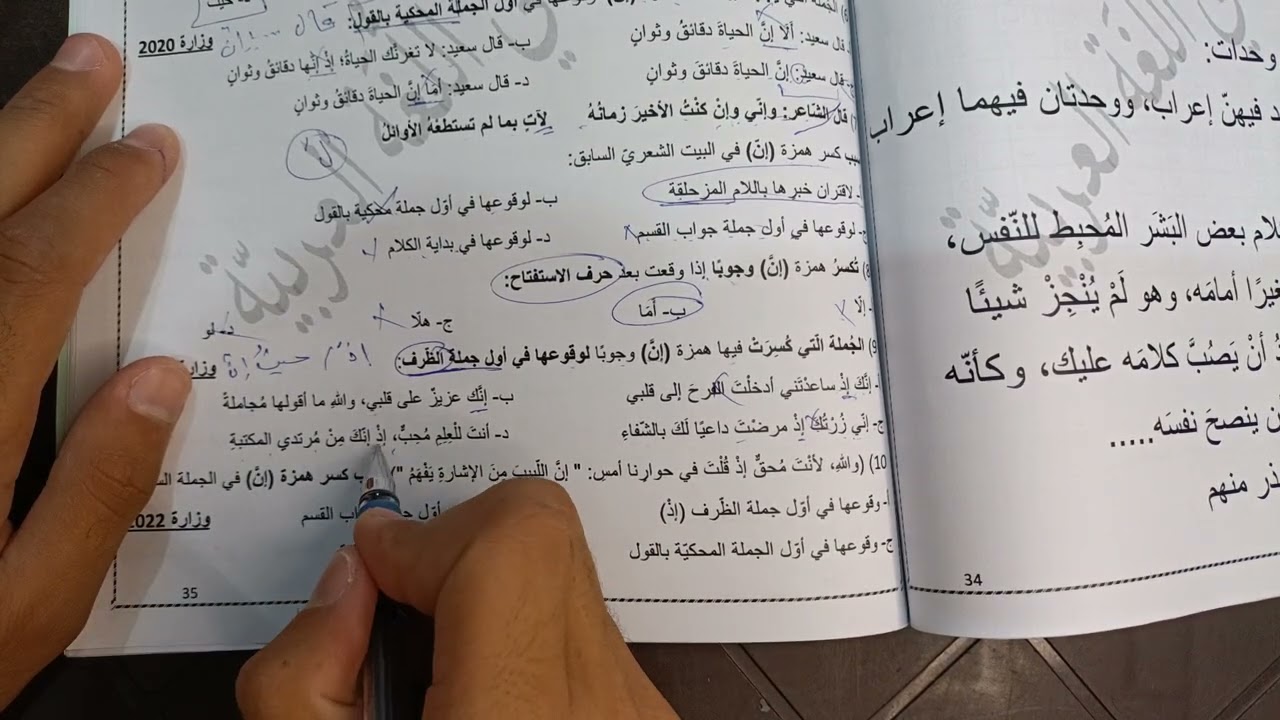 في أول الجملة المحكية بالقول:
قال سعيد: ألَا إنَّ الحياةَ دقائقُ وثوانٍ ب- قال سعيد: لا تغرنّك الحياةُ؛ إذ إنّها دقائقُ وثوانٍ وزارة 2020
قال سعيد: إنَّ الحياةَ دقائقَ وثوانٍ د- قال سعيد: أمَا إنَّ الحياةَ دقائقُ وثوانٍ
قال الشاعر: وإنّي وإنْ كنْتُ الأخيرَ زمانُهُ لآتٍ بما لم تستطعْهُ الأوائلُ
سبب كسر همزة (إنّ) في البيت الشعريّ السابق:
لاقتران خبرها باللام المزحلقة ب- لوقوعها في أوّل جملة محكية بالقول
لوقوعها في أول جملة جواب القسم د- لوقوعها في بداية الكلام
8) تُكسرُ همزة (إنَّ) وجوبًا إذا وقعت بعد حرف الاستفتاح:
إلّا ب- أمَا ج- هلّا د- لو
9) الجُملة الّتي كُسِرَتْ فيها همزة (إنَّ) وجوبًا لوقوعها في أول جملة الظّرف: إذ حيث إنّ
إنّكَ إذْ ساعدْتَني أدخلْتَ الفرحَ إلى قلبي ب- إنَّك عزيزٌ على قلبي، واللهِ ما أقولها مُجاملةً
ج- إنّي زُرْتُكَ إذْ مرضْتَ داعيًا لَكَ بالشّفاءِ د- أنتَ للْعِلمِ مُحبٌّ، إذْ إنّكَ مِنْ مُرتدي المكتبةِ
10) (واللهِ، لأنْتَ مُحقٌّ إذْ قُلْتَ في حوارِنا أمسِ: " إنَّ اللّبيبَ مِنَ الإشارةِ يَفْهَمُ ") كسر همزة (إنَّ) في الجملة
أ- وقوعها في أوّل جملة الظّرف (إذْ) أوّل القسم وزارة 2022
ج- وقوعها في أوّل الجملة المحكيّة بالقول
35
وحدات:
فيهنّ إعراب، ووحدتان فيهما إعراب
بعض البَشَر المُحبِط للنّفس،
أمامَه، وهو لَمْ يُنْجِزْ شيئًا
أنْ يَصُبَّ كلامَه عليك، وكأنّه
ينصحَ نفسَه.....
منهم
34